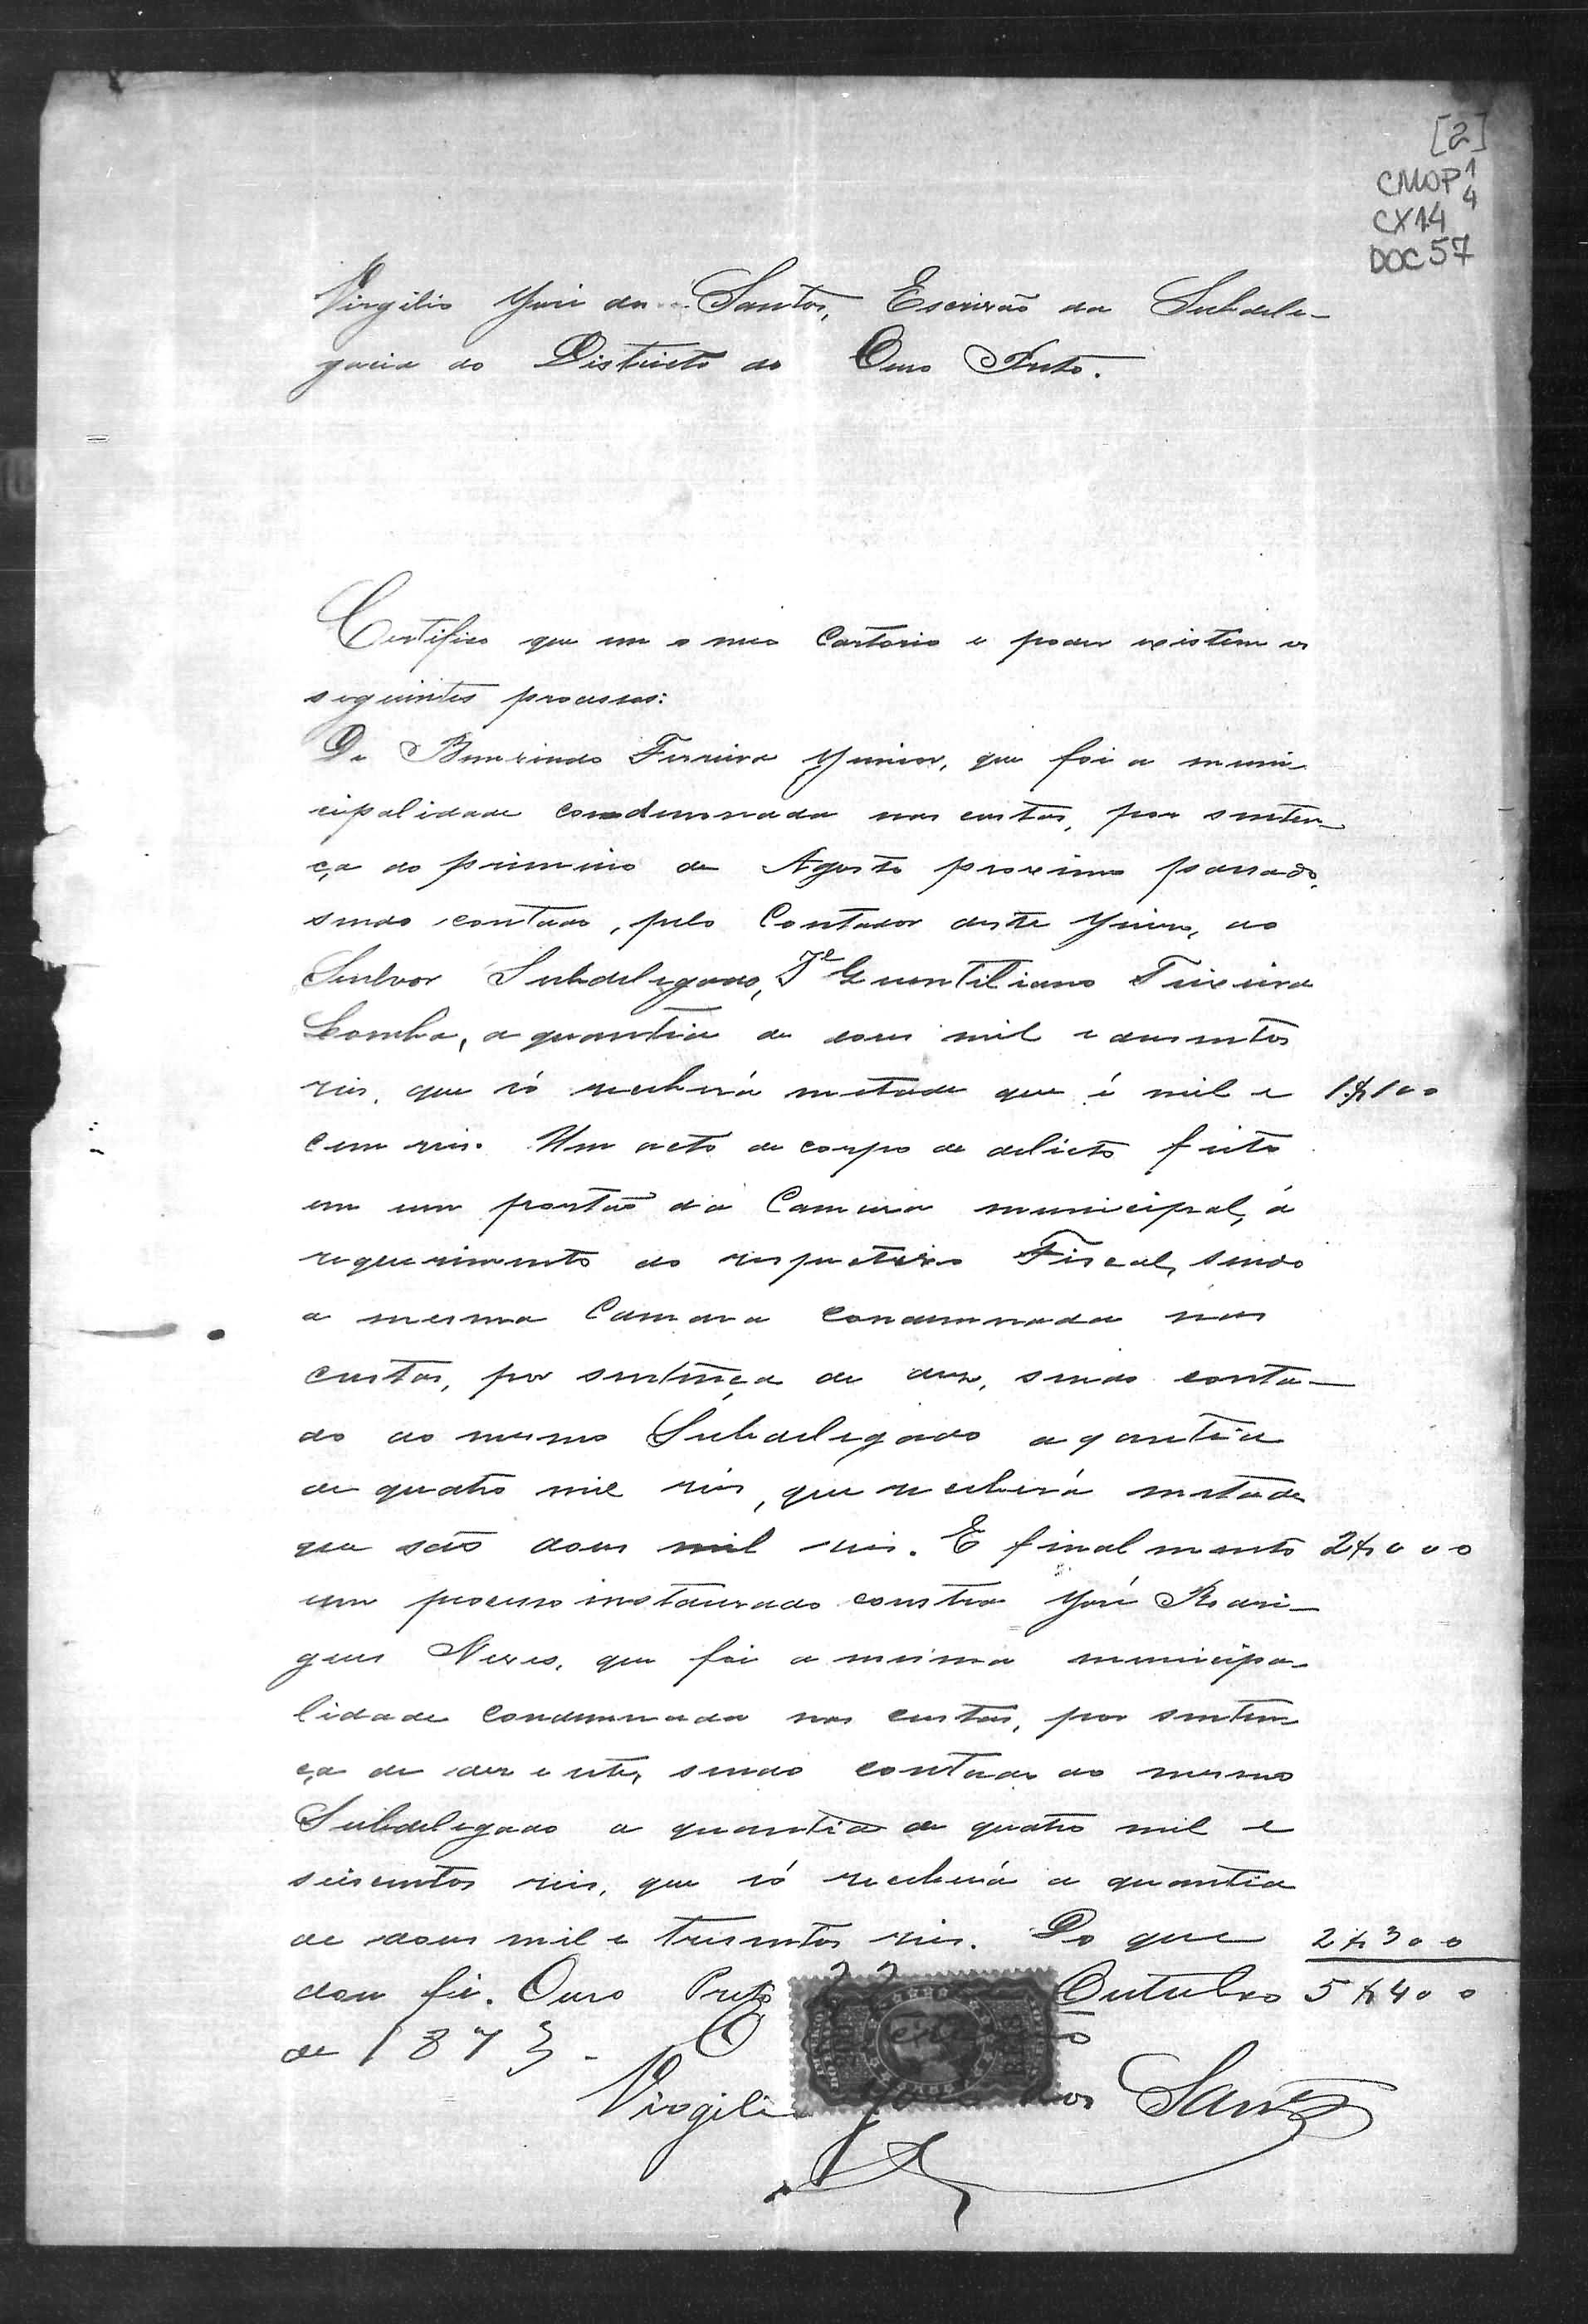 [2]
CMOP 1/4
CX14
DOC 57
Virgilio José dos Santos, Escrivão da Subdele-
gacia do Districto do Ouro Preto.
Certifico que em o meo Cartorio e poder existem os
seguintes processos:
De Ferreira Junior, que foi a muni-
cipalidade condemnada nas custas, por senten-
ça do primeiro de Agosto proximo passado,
sendo contado, pelo Contador deste Juizo, ao
Senhor Subdelegado, Je Quintiliano Teixeira
a quantia de dous mil e dusentos
reis, que só receberá metade que é mil e 1$100
cem reis. Um acto de corpo de delicto feito
em um portão da Camara municipal, á
requerimento do respectivo Fiscal, sendo
a mesma Camara condemnada nas
custas, por sentença de dez, sendo conta-
do ao mesmo Subdelegado a qantia
de quatro mil reis, que receberá metade
que são dous mil reis. E finalmente 2$000
um processo instaurado contra José Rodri-
gues Neves, que foi a mesma municipa-
lidade condemnada nas custas, por senten-
ça de dez e sete, sendo contado ao mesmo
Subdelegado a quantia de quatro mil e
seiscentos reis, que só receberá a quantia
de dous mil e tresentos reis. Do que 2$300
dou fé. Ouro Preto 22 Outubro 5$400
de 1873. O
Virgilio José dos Santos